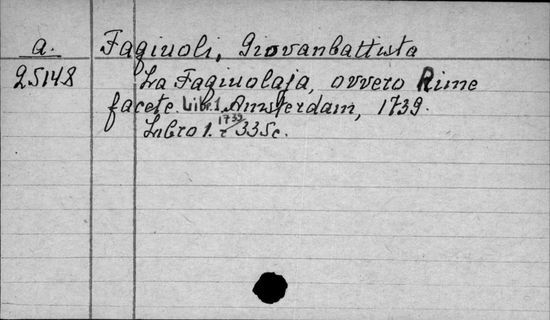 a. Fagiuoli, Giovanbattista
25148 La Fagiuolaja, ovvero Rime
facete. Libr.1. Amsterdam, 1739.
Libro 1. 1739 335c.